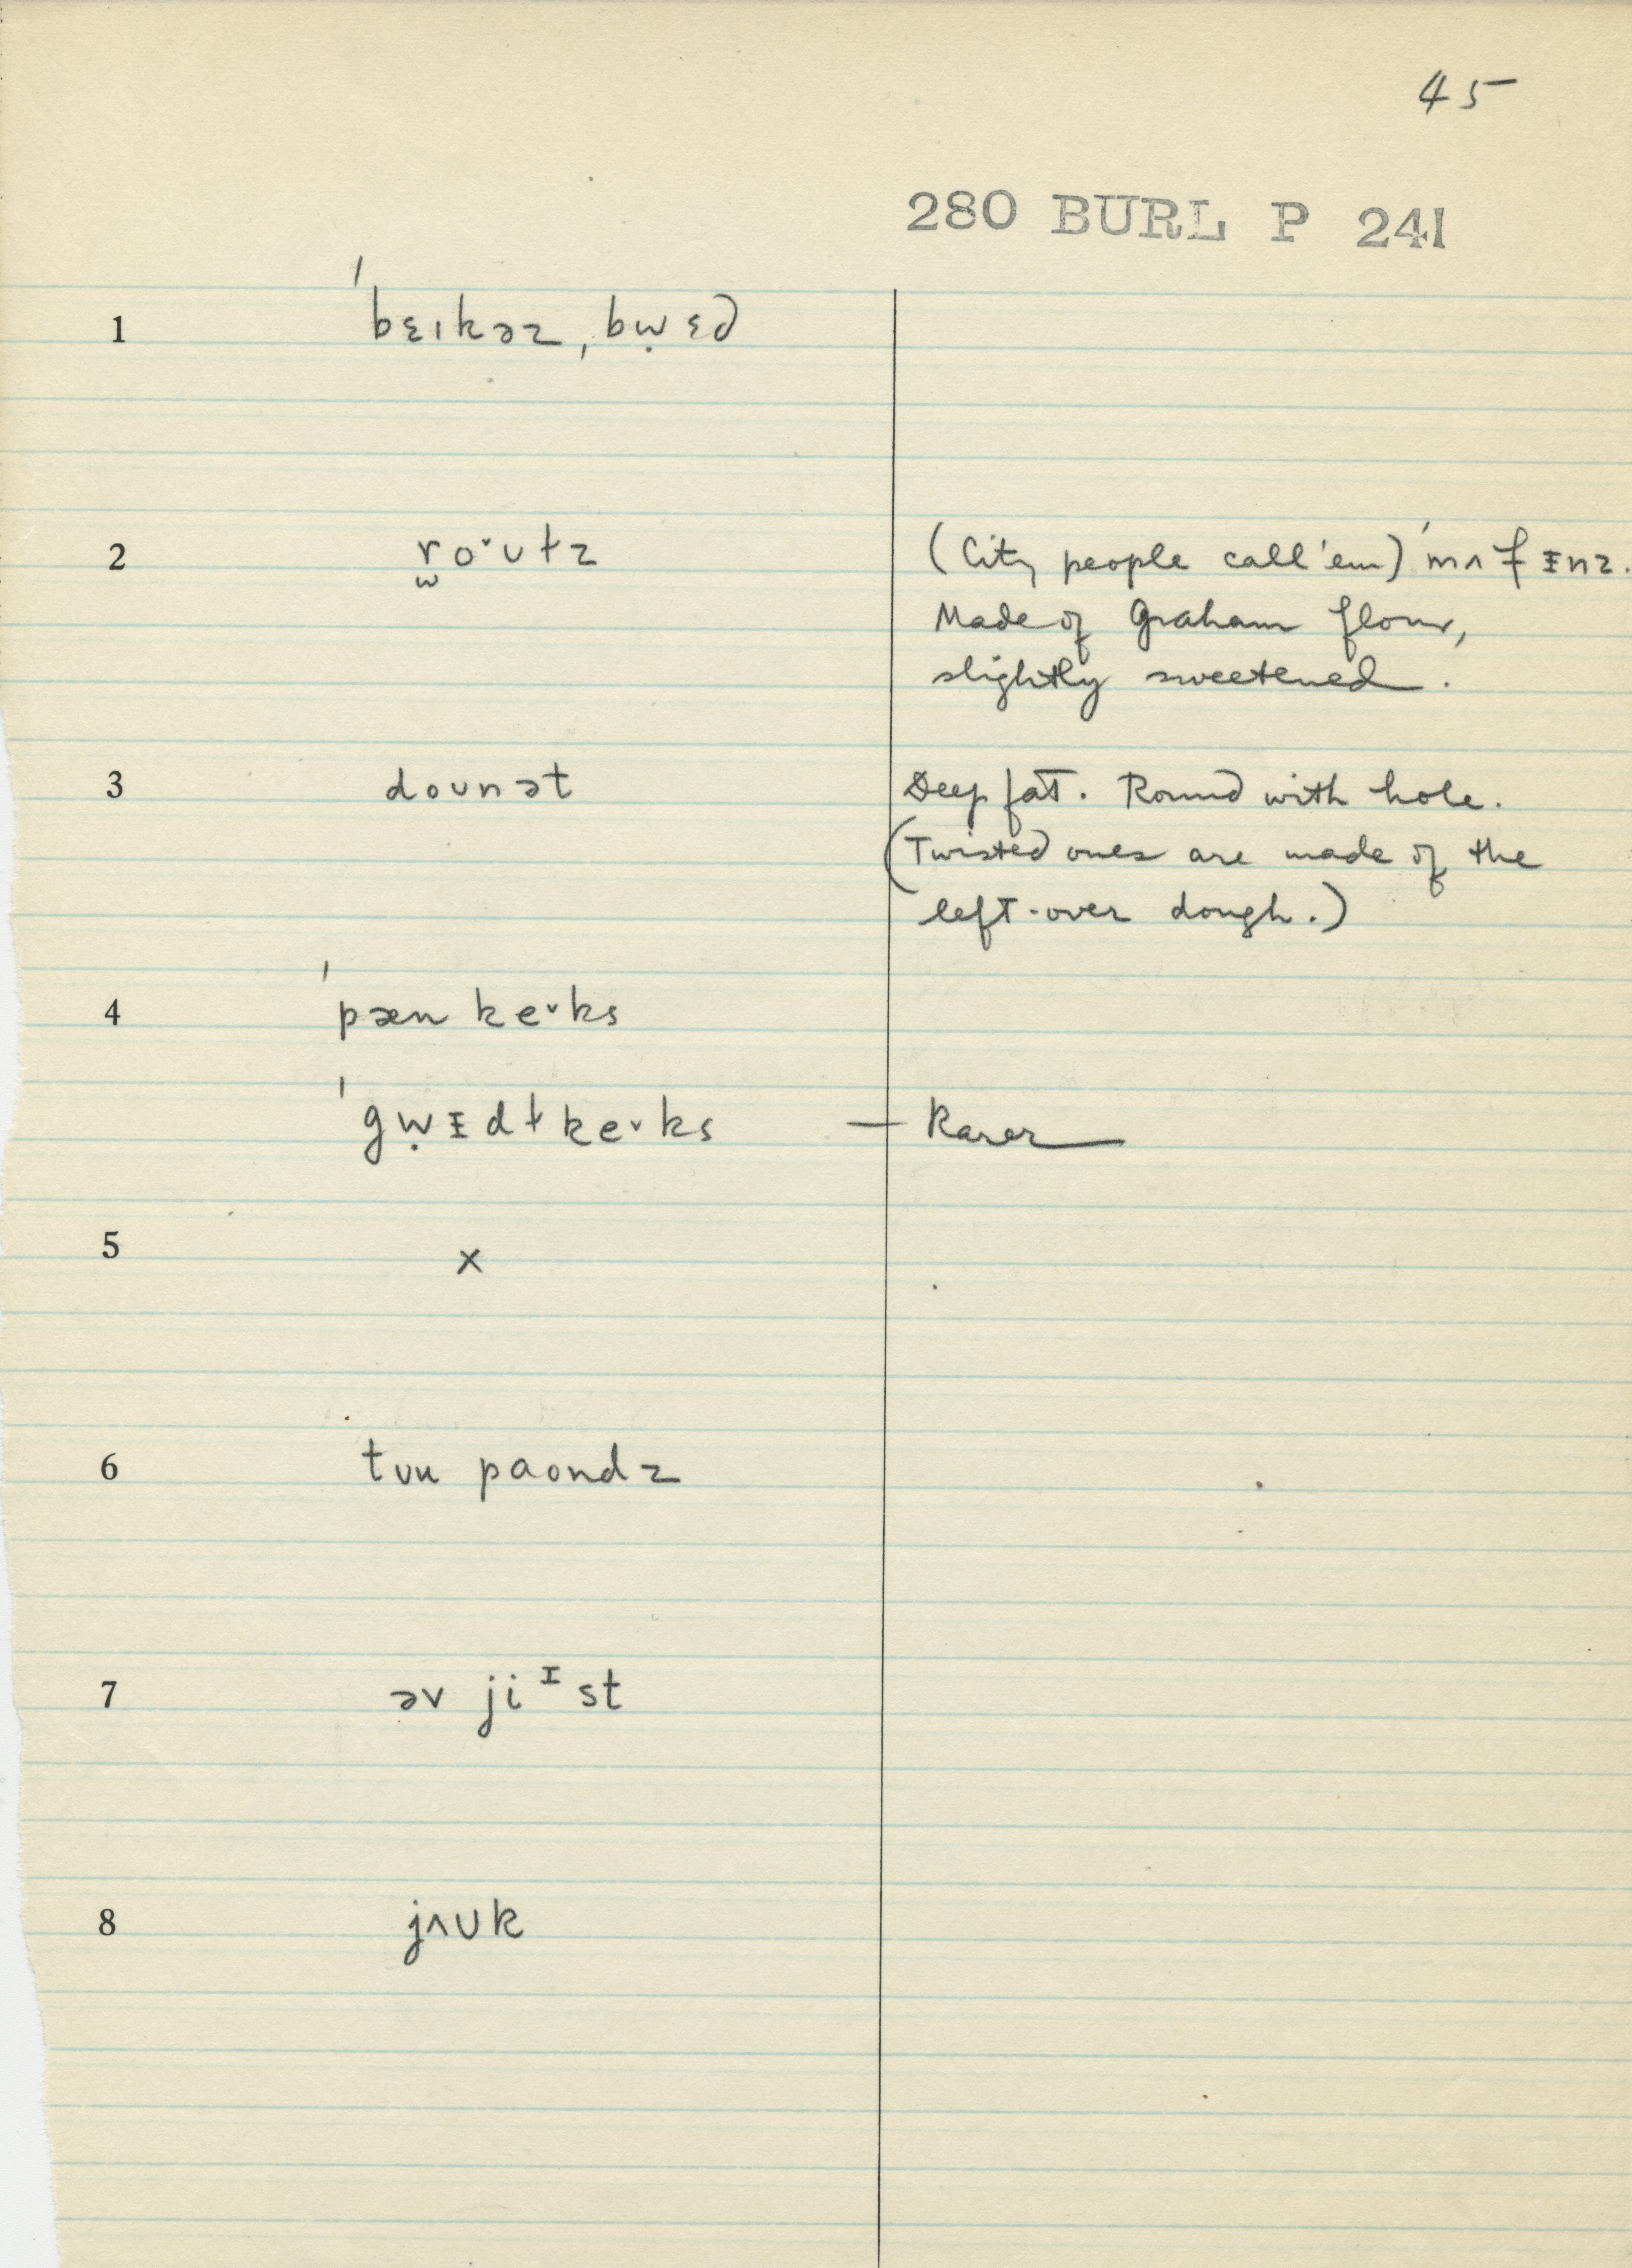 45
280 BURL P 241
1 ˈbɛıkəz, bẉɛd
2 r̫oˇʊɫz (City people call 'em) ˈmʌfɪ̵nz.
Made of Graham flour,
slightly sweetened.
3 doʊnət Deep fat. Round with hole.
(Twisted ones are made of the
left-over dough.)
4 ˈpæn keˇks
ˈgẉɪ̵dɫkeˇks — Rarer
5 x
6 tʊu paondz
7 əv jiᴵst
8 jʌʊk